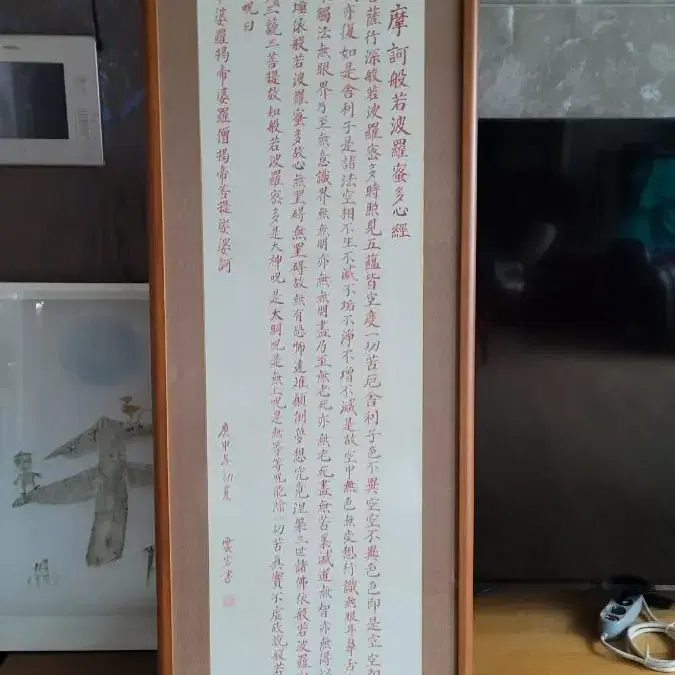 摩訶般若波羅蜜多心經
菩薩行深般若波羅蜜多時照見五蘊皆空度一切苦厄舍利子色不異空空不異色色即是空空即
亦復如是舍利子是諸法空相不生不滅不垢不淨不增不減是故空中無色無受想行識無眼耳鼻舌
觸法無眼界乃至無意識界無無明亦無無明盡乃至無老死亦無老死盡無苦集滅道無智亦無得以
埵依般若波羅蜜多故心無罣碍無罣碍故無有恐怖遠離顛倒夢想究竟涅槃三世諸佛依般若波羅
三藐三菩提故知般若波羅蜜多是大神呪是大明呪是無上呪是無等等呪能除一切苦真實不虛故說般若
呪曰
帝婆羅揭帝婆羅僧揭帝菩提娑婆訶
庚申年初夏
雲 書